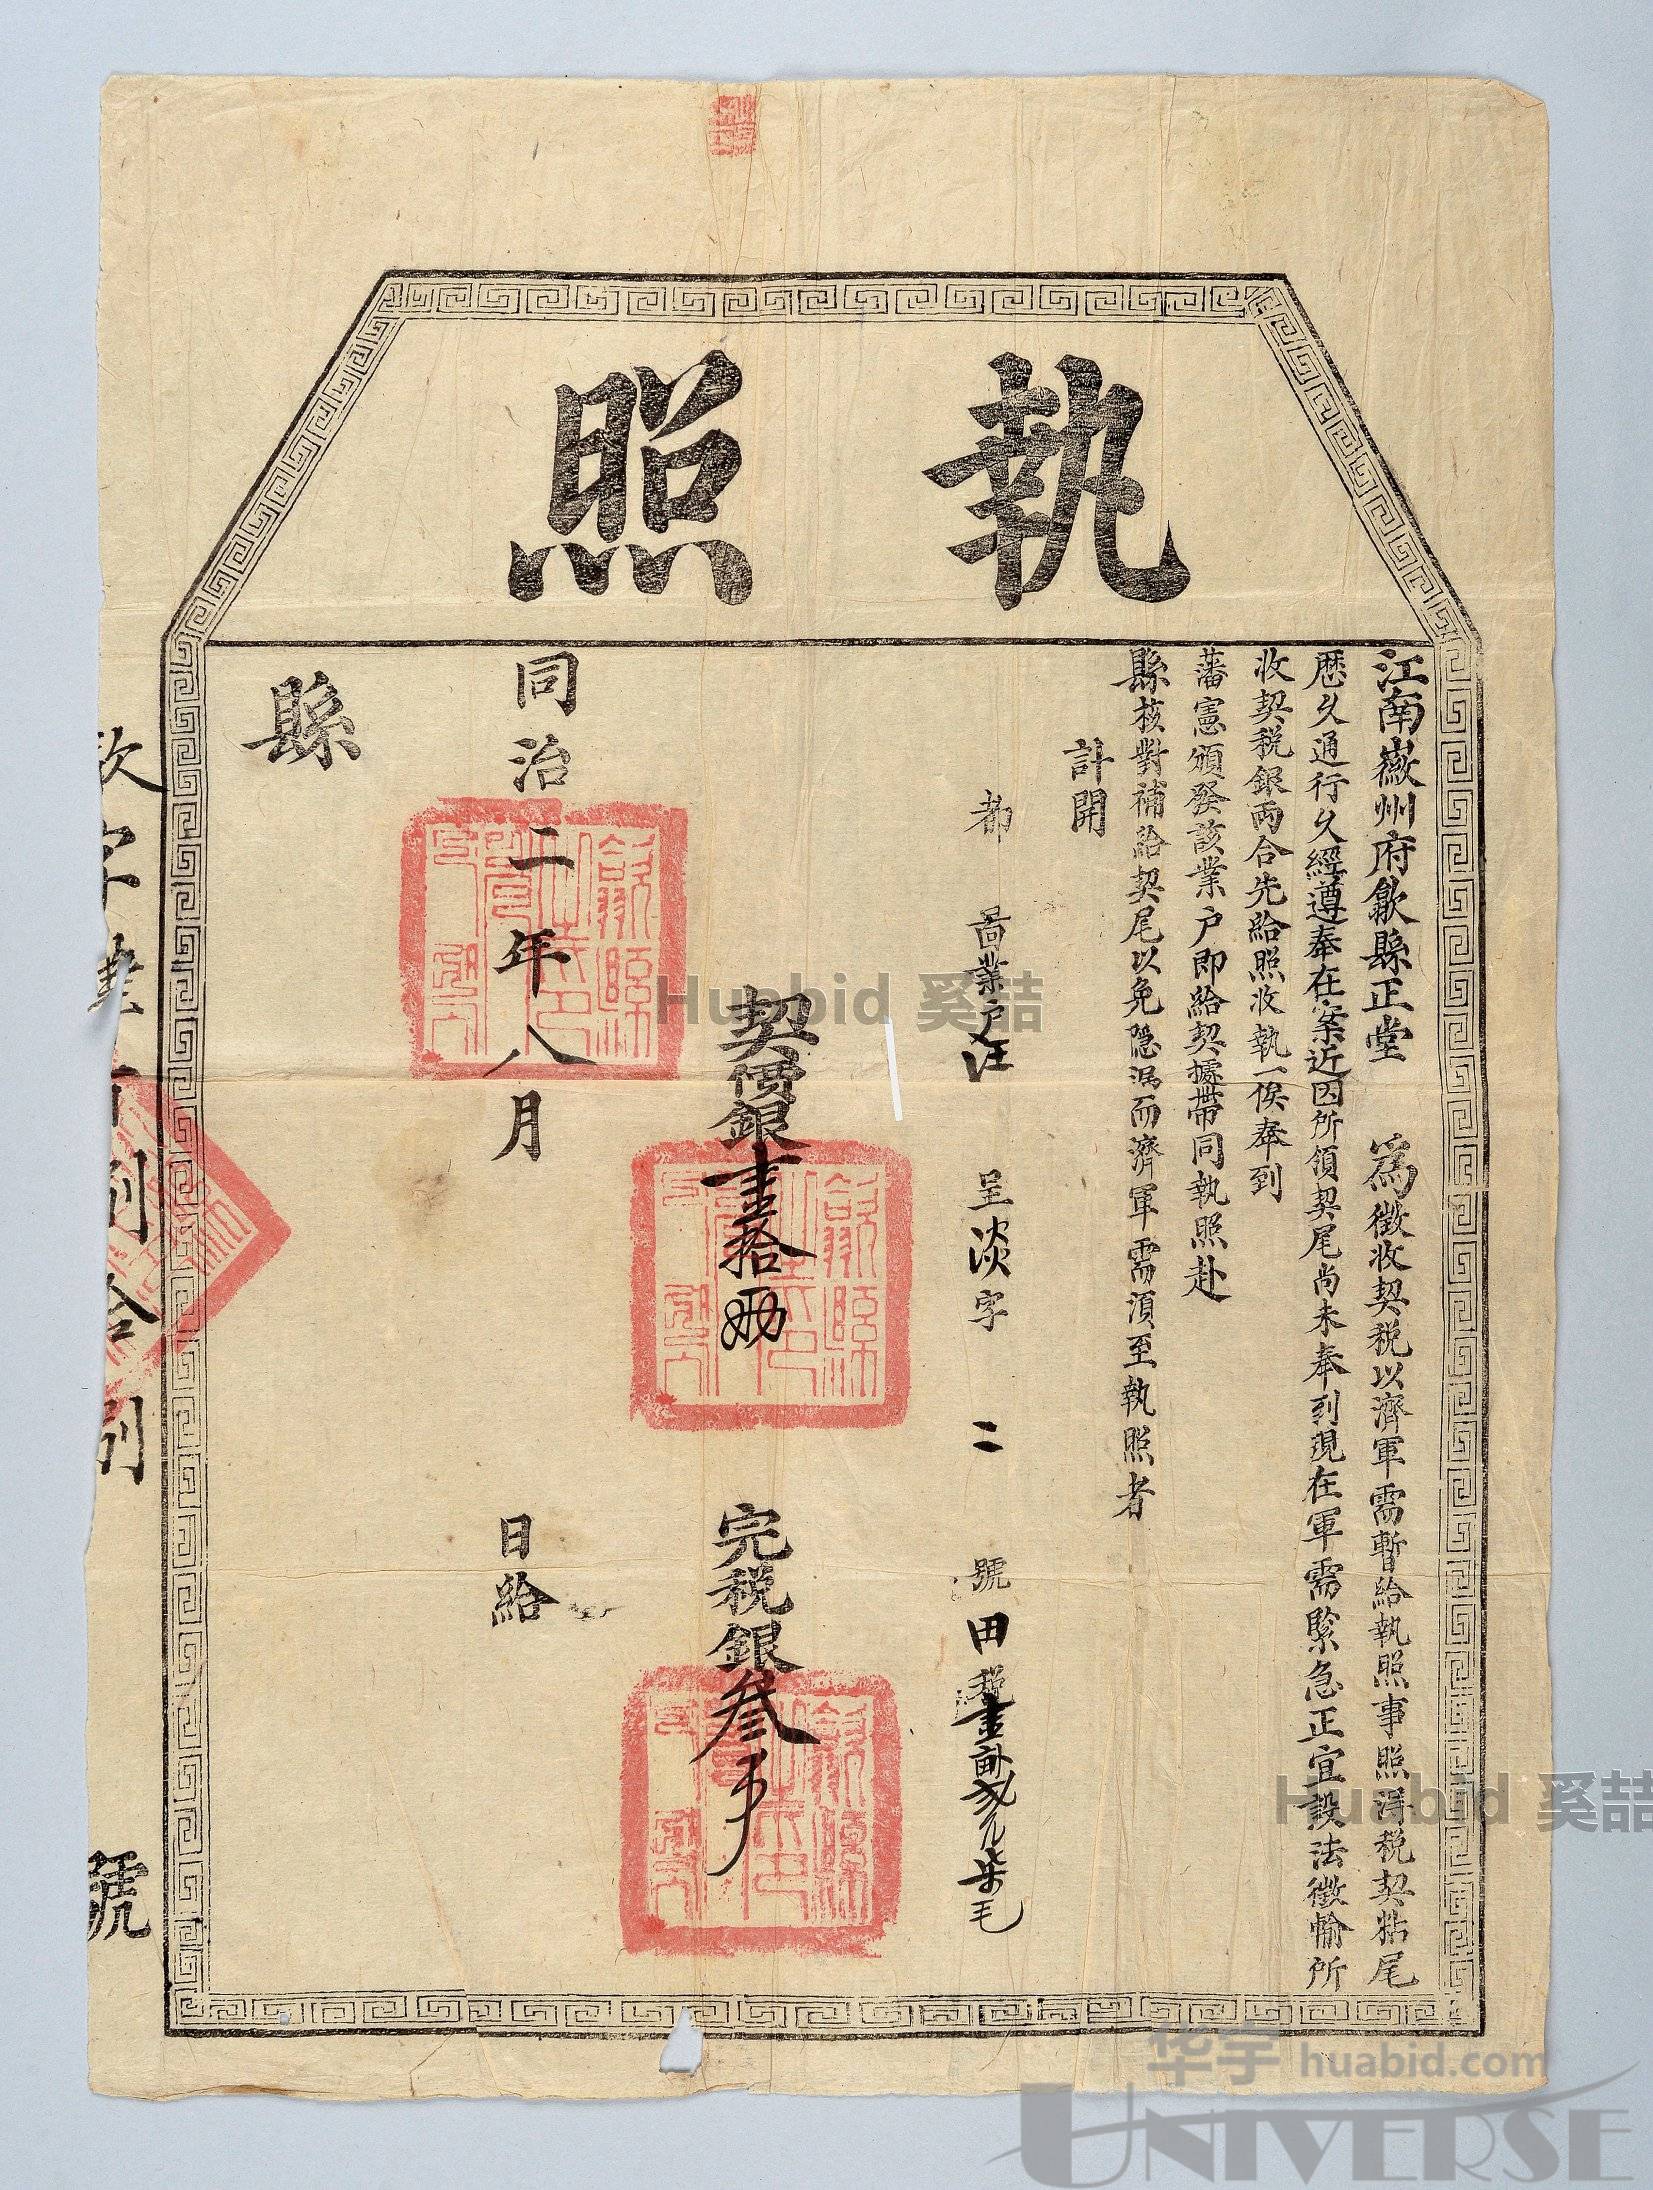 執照
江南徽州府歙縣正堂 為徵收契税以濟軍需暫給執照事照得税契粘尾
歷久通行久經遵奉在案近因所領契尾尚未奉到現在軍需緊急正宜設法徵輸所
收契税銀兩合先給照收執一俟奉到
藩憲頒發該業户即給契據帶同執照赴
縣核對補給契尾以免隐漏而濟軍需須至執照者
計開
都 啚業户汪 呈淡字 二 號田税壹
契價銀壹拾兩 完税銀叁
同治二年八月 日給
縣
字 捌拾捌 號
Huabid 奚喆
Huabid 奚喆
华宇 huabid.com
UNIVERSE